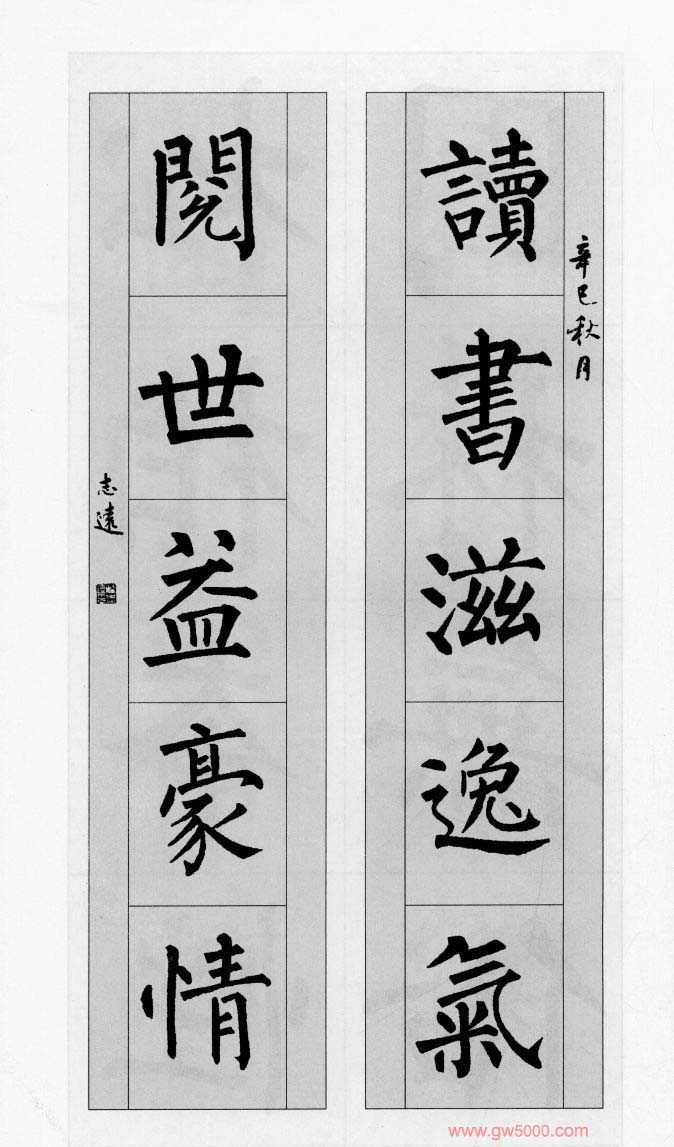 辛巳秋月
讀書滋逸氣
閱世益豪情
志遠
www.gw5000.com